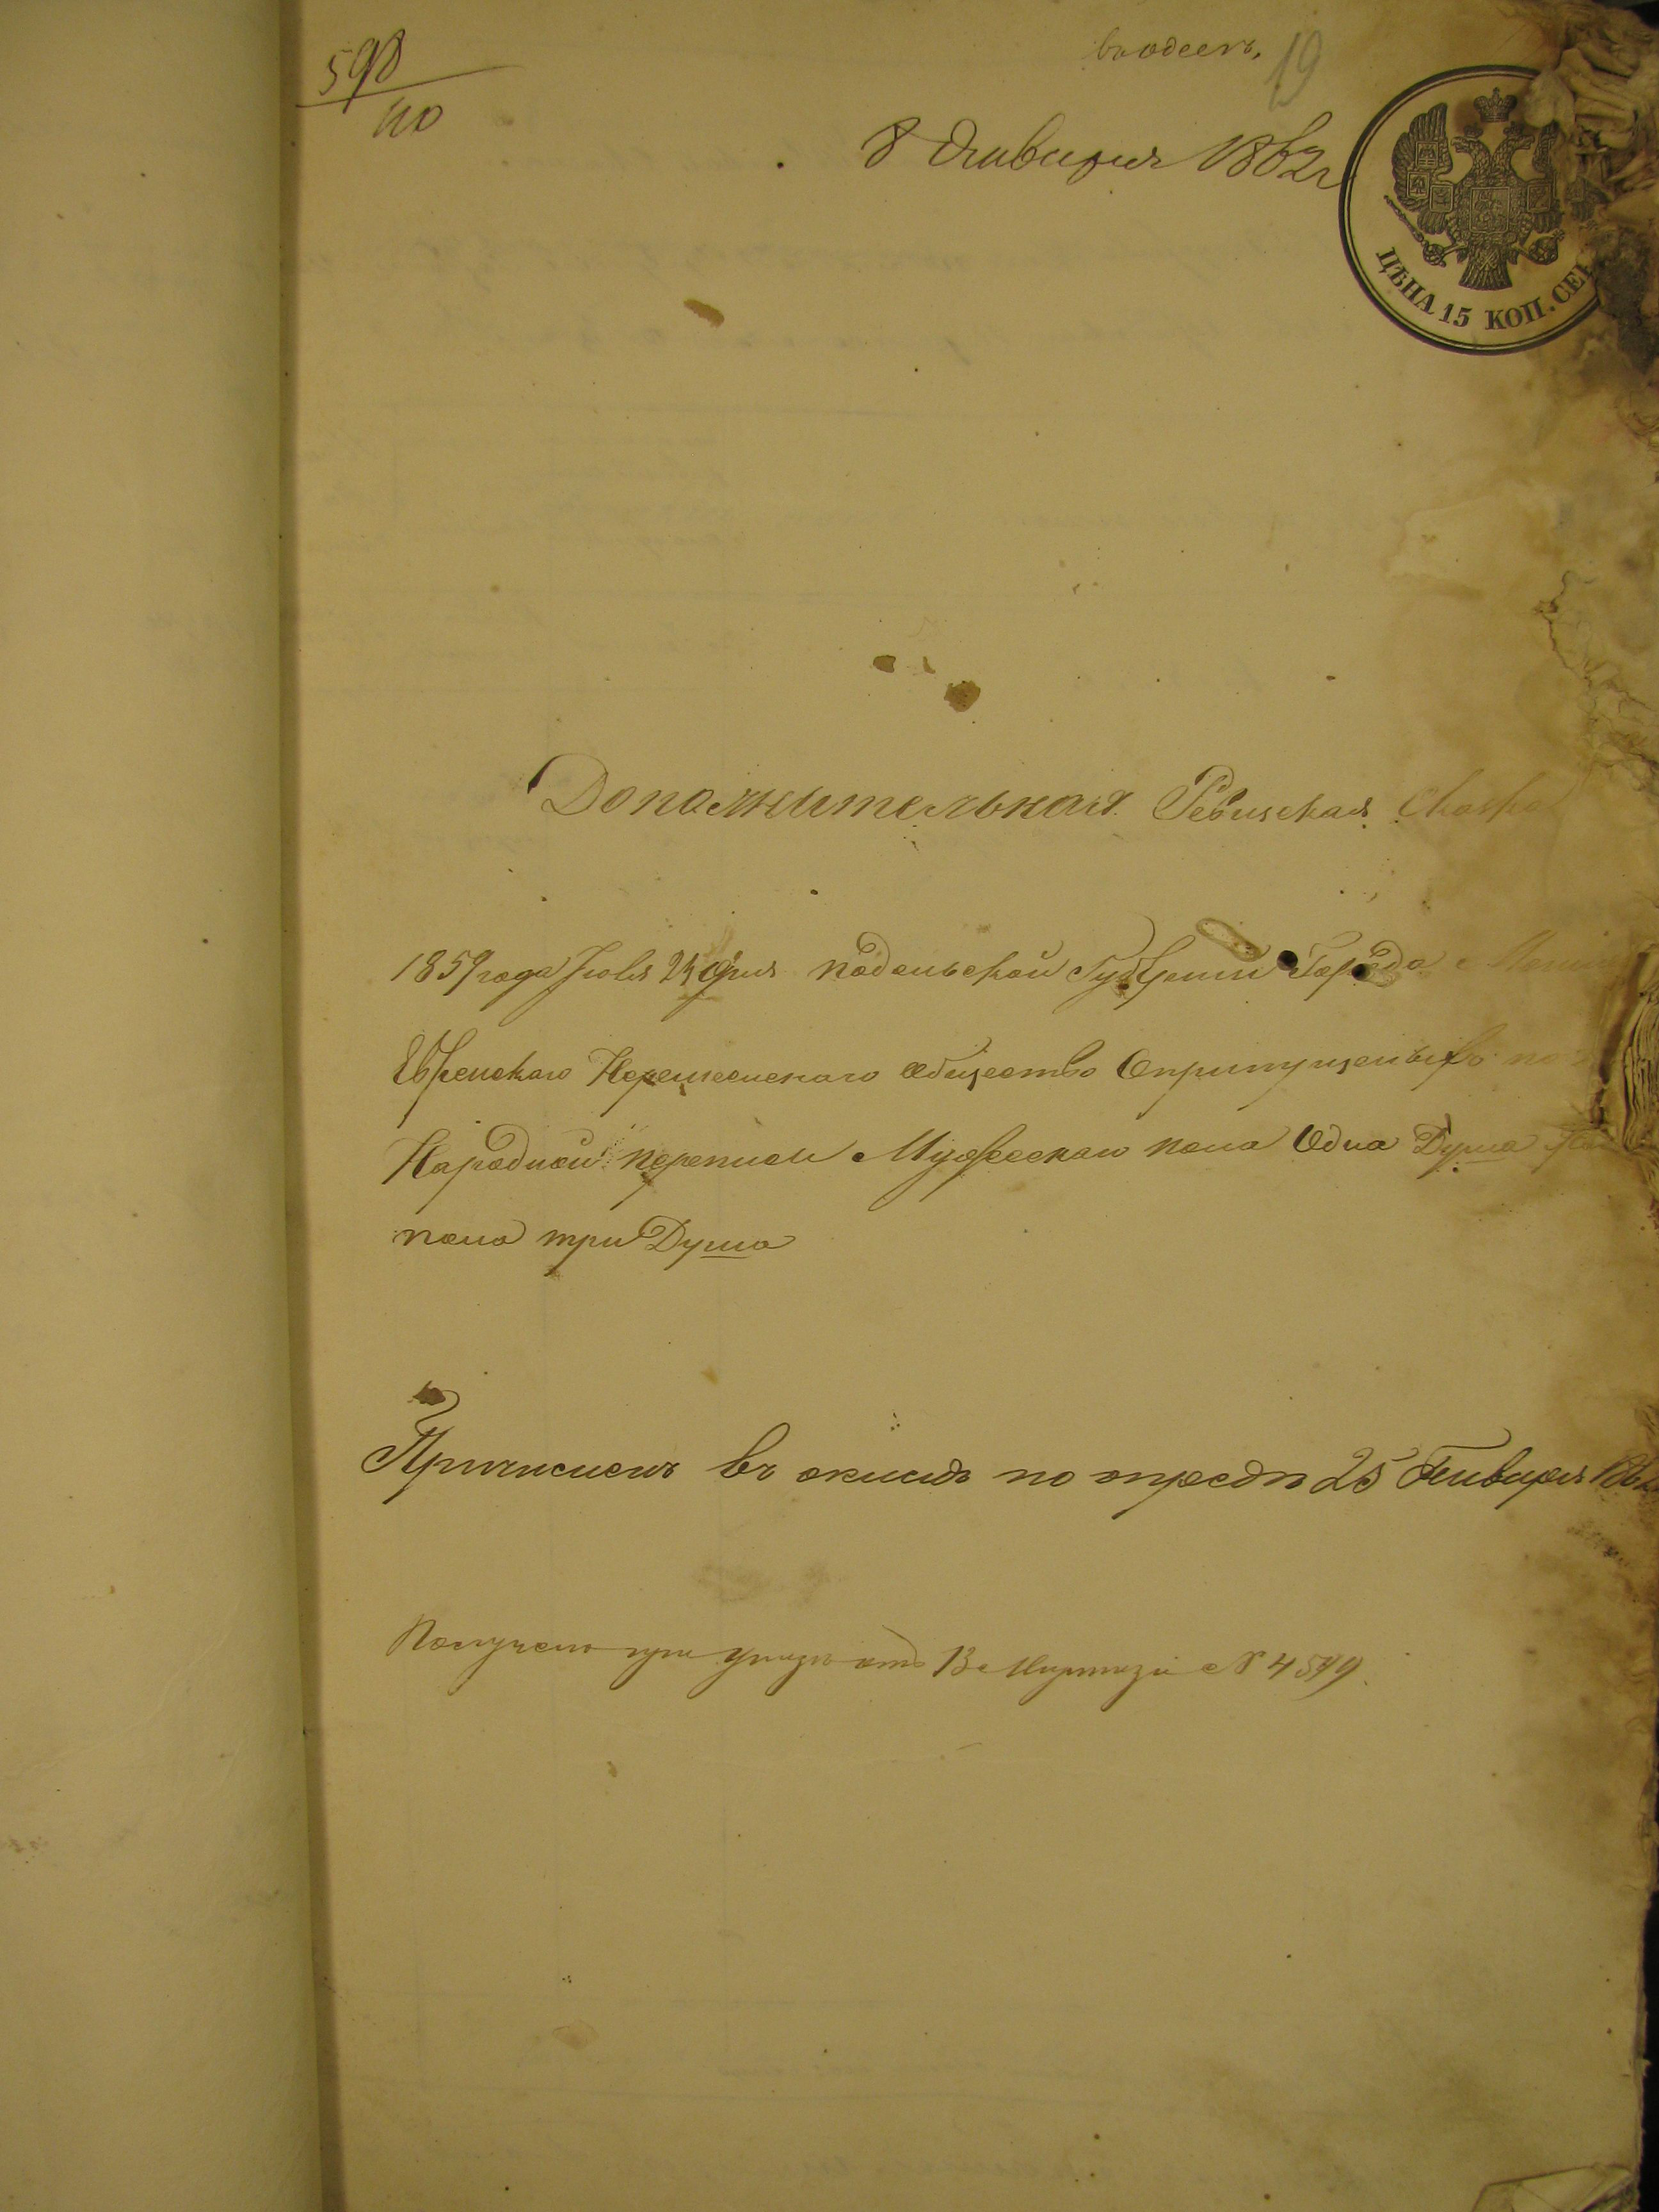 598
110
19
8 Января 1862 г
ЦѢНА 15 КОП. СЕР
Дополнительная Ревизская Сказка
1859 года Іюля 24 дня Подольской Губерніи Города
Еврейскаго Мещанскаго общество О пропущеныхъ по
Народной переписи Мужескаго пола Одна Душа
пола три Душа
Причисленъ въ окладъ по отредѣ 25 Генваря 186
Получено при Указѣ отъ 13 Марта № 4549.